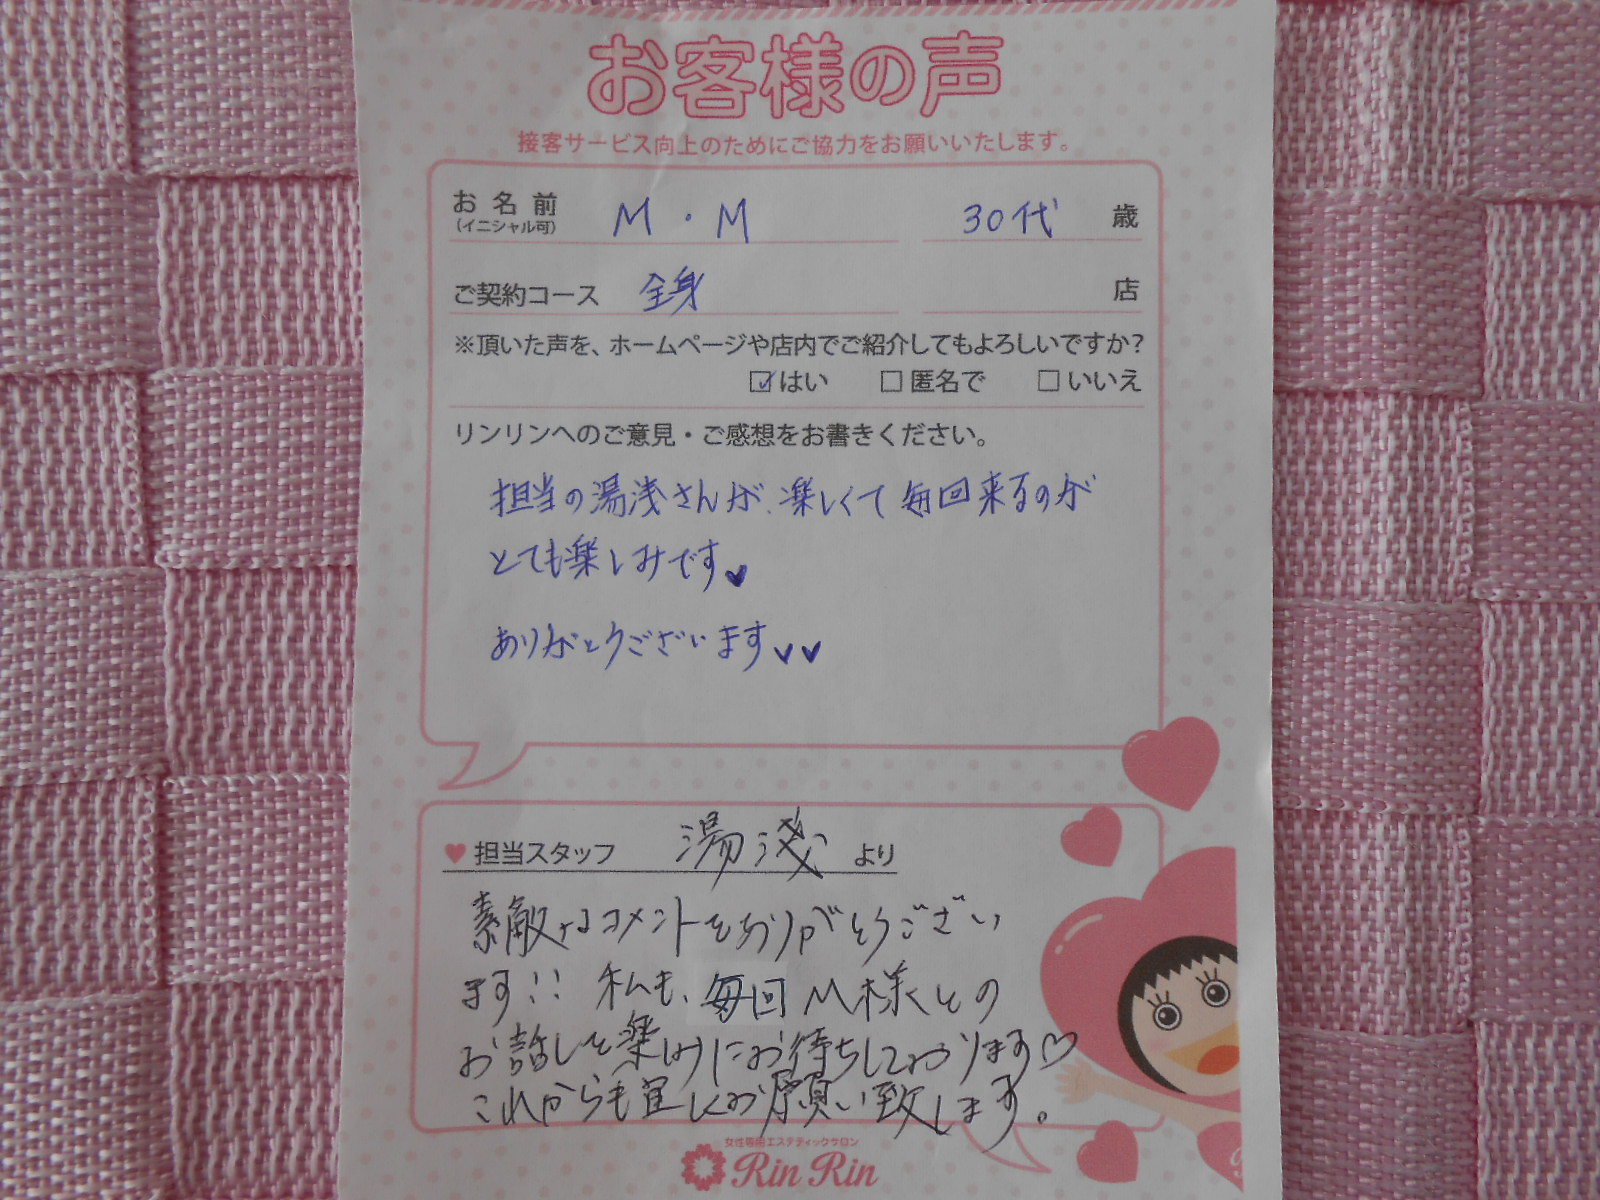 お客様の声
接客サービス向上のためにご協力をお願いいたします。
お名前 M・M 30代 歳
(イニシャル可)
ご契約コース 全身 店
※頂いた声を、ホームページや店内でご紹介してもよろしいですか?
☑はい □匿名で □いいえ
リンリンへのご意見・ご感想をお書きください。
担当の湯浅さんが、楽しくて毎回来るのが
とても楽しみです♥
ありがとうございます♥♥
♥担当スタッフ 湯浅 より
素敵なコメントをありがとうござい
ます!! 私も、毎回M様との
お話しを楽しみにお待ちしております♡
これからも宜しくお願い致します。
女性専用エステティックサロン
Rin Rin